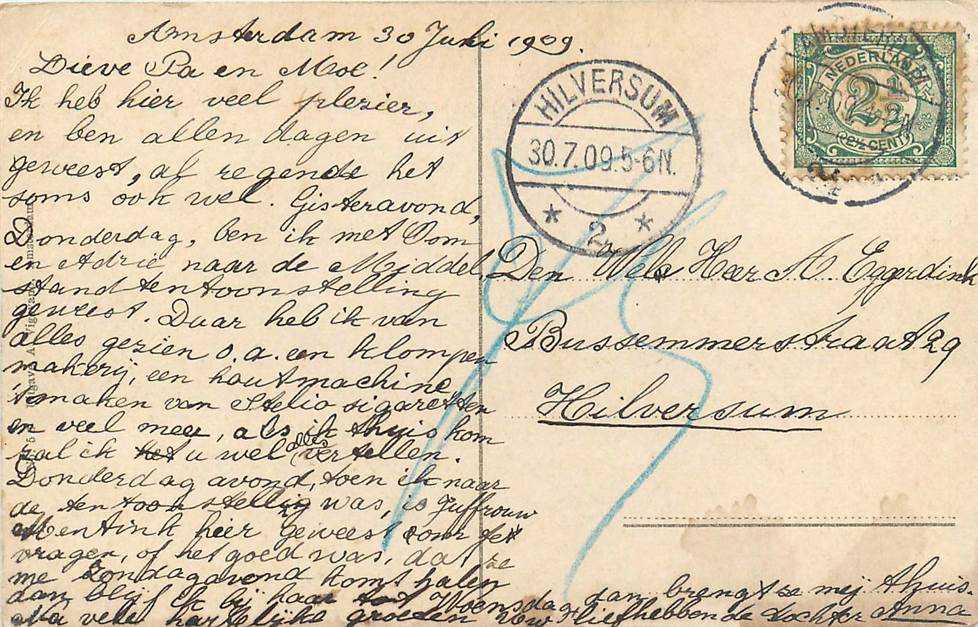 Amsterdam 30 Juli 1909.
Lieve Pa en Moe!
Ik heb hier veel plezier,
en ben allen dagen uit
geweest, al regende het
soms ook wel. Gisteravond,
Donderdag, ben ik met Oom
en Adrie naar de Middel
standtentoonstelling
geweest. Daar heb ik van
alles gezien o.a. en klompen
makerij, een houtmachine
'tmaken van Stelio sigaretten
en veel meer, als ik thuis kom
zal ik het u wel alles vertellen.
Donderdag avond, toen ik naar
de tentoonstellig was, is Juffrouw
Mentink hier geweest om te
vragen, of het goed was, dat ze
me Zondagavond komt halen
dan blijf ik bij haar tot Woensdag, dan brengt ze mij thuis.
Na vele hartelijke groeten Uw liefhebbende dochter Anna
HILVERSUM
30.7.09.5-6N.
* 2 *
NEDERLAND
2½
2½ CENT
Den Wele Heer A. Eggerdink
Bussemmerstraat 29
Hilversum